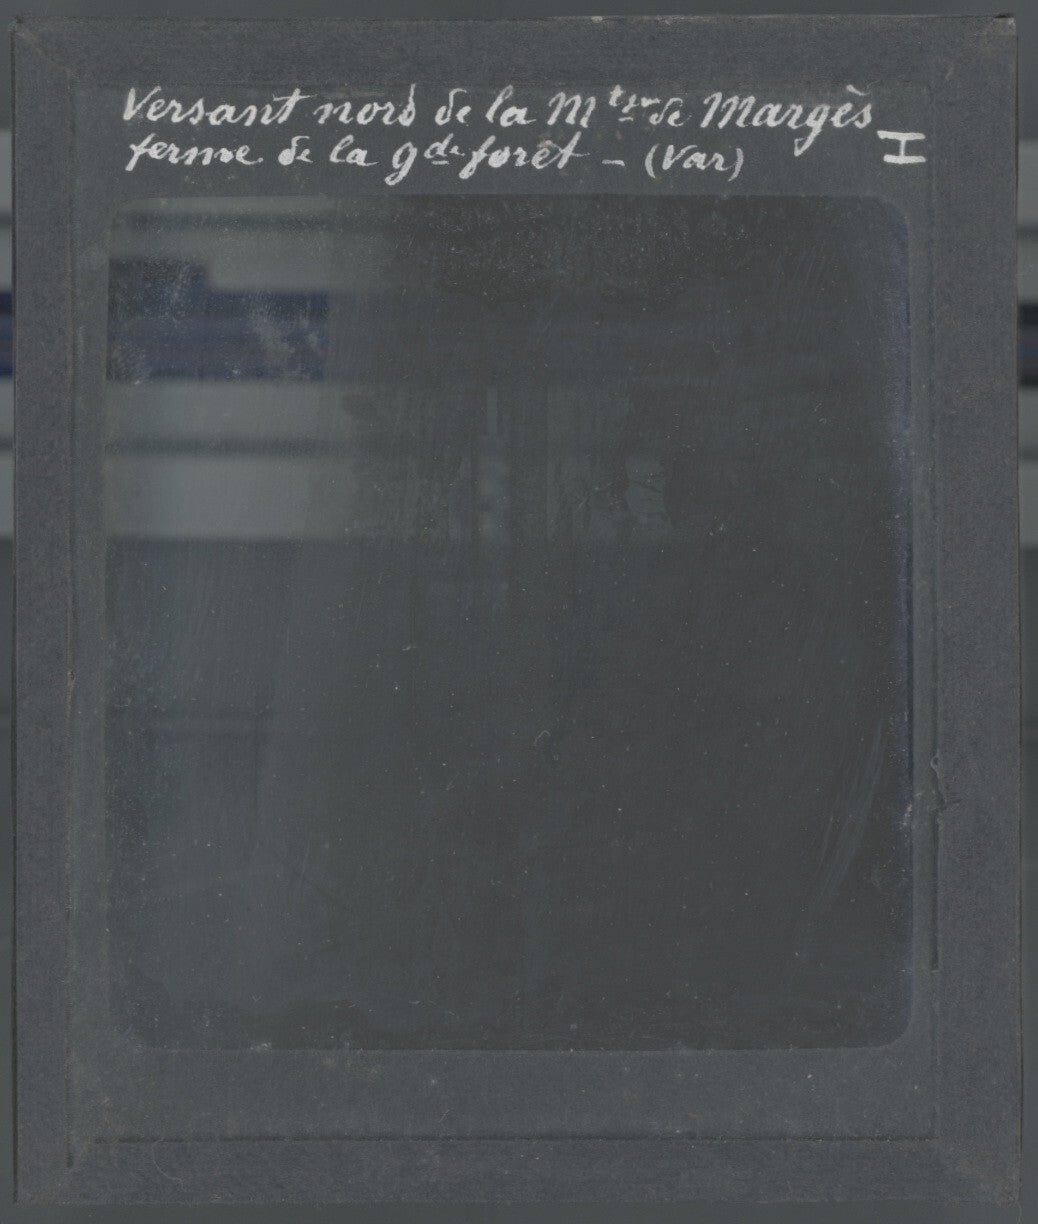 Versant nord de la M^tgne de Margès
ferme de la g^de forêt – (Var)
I